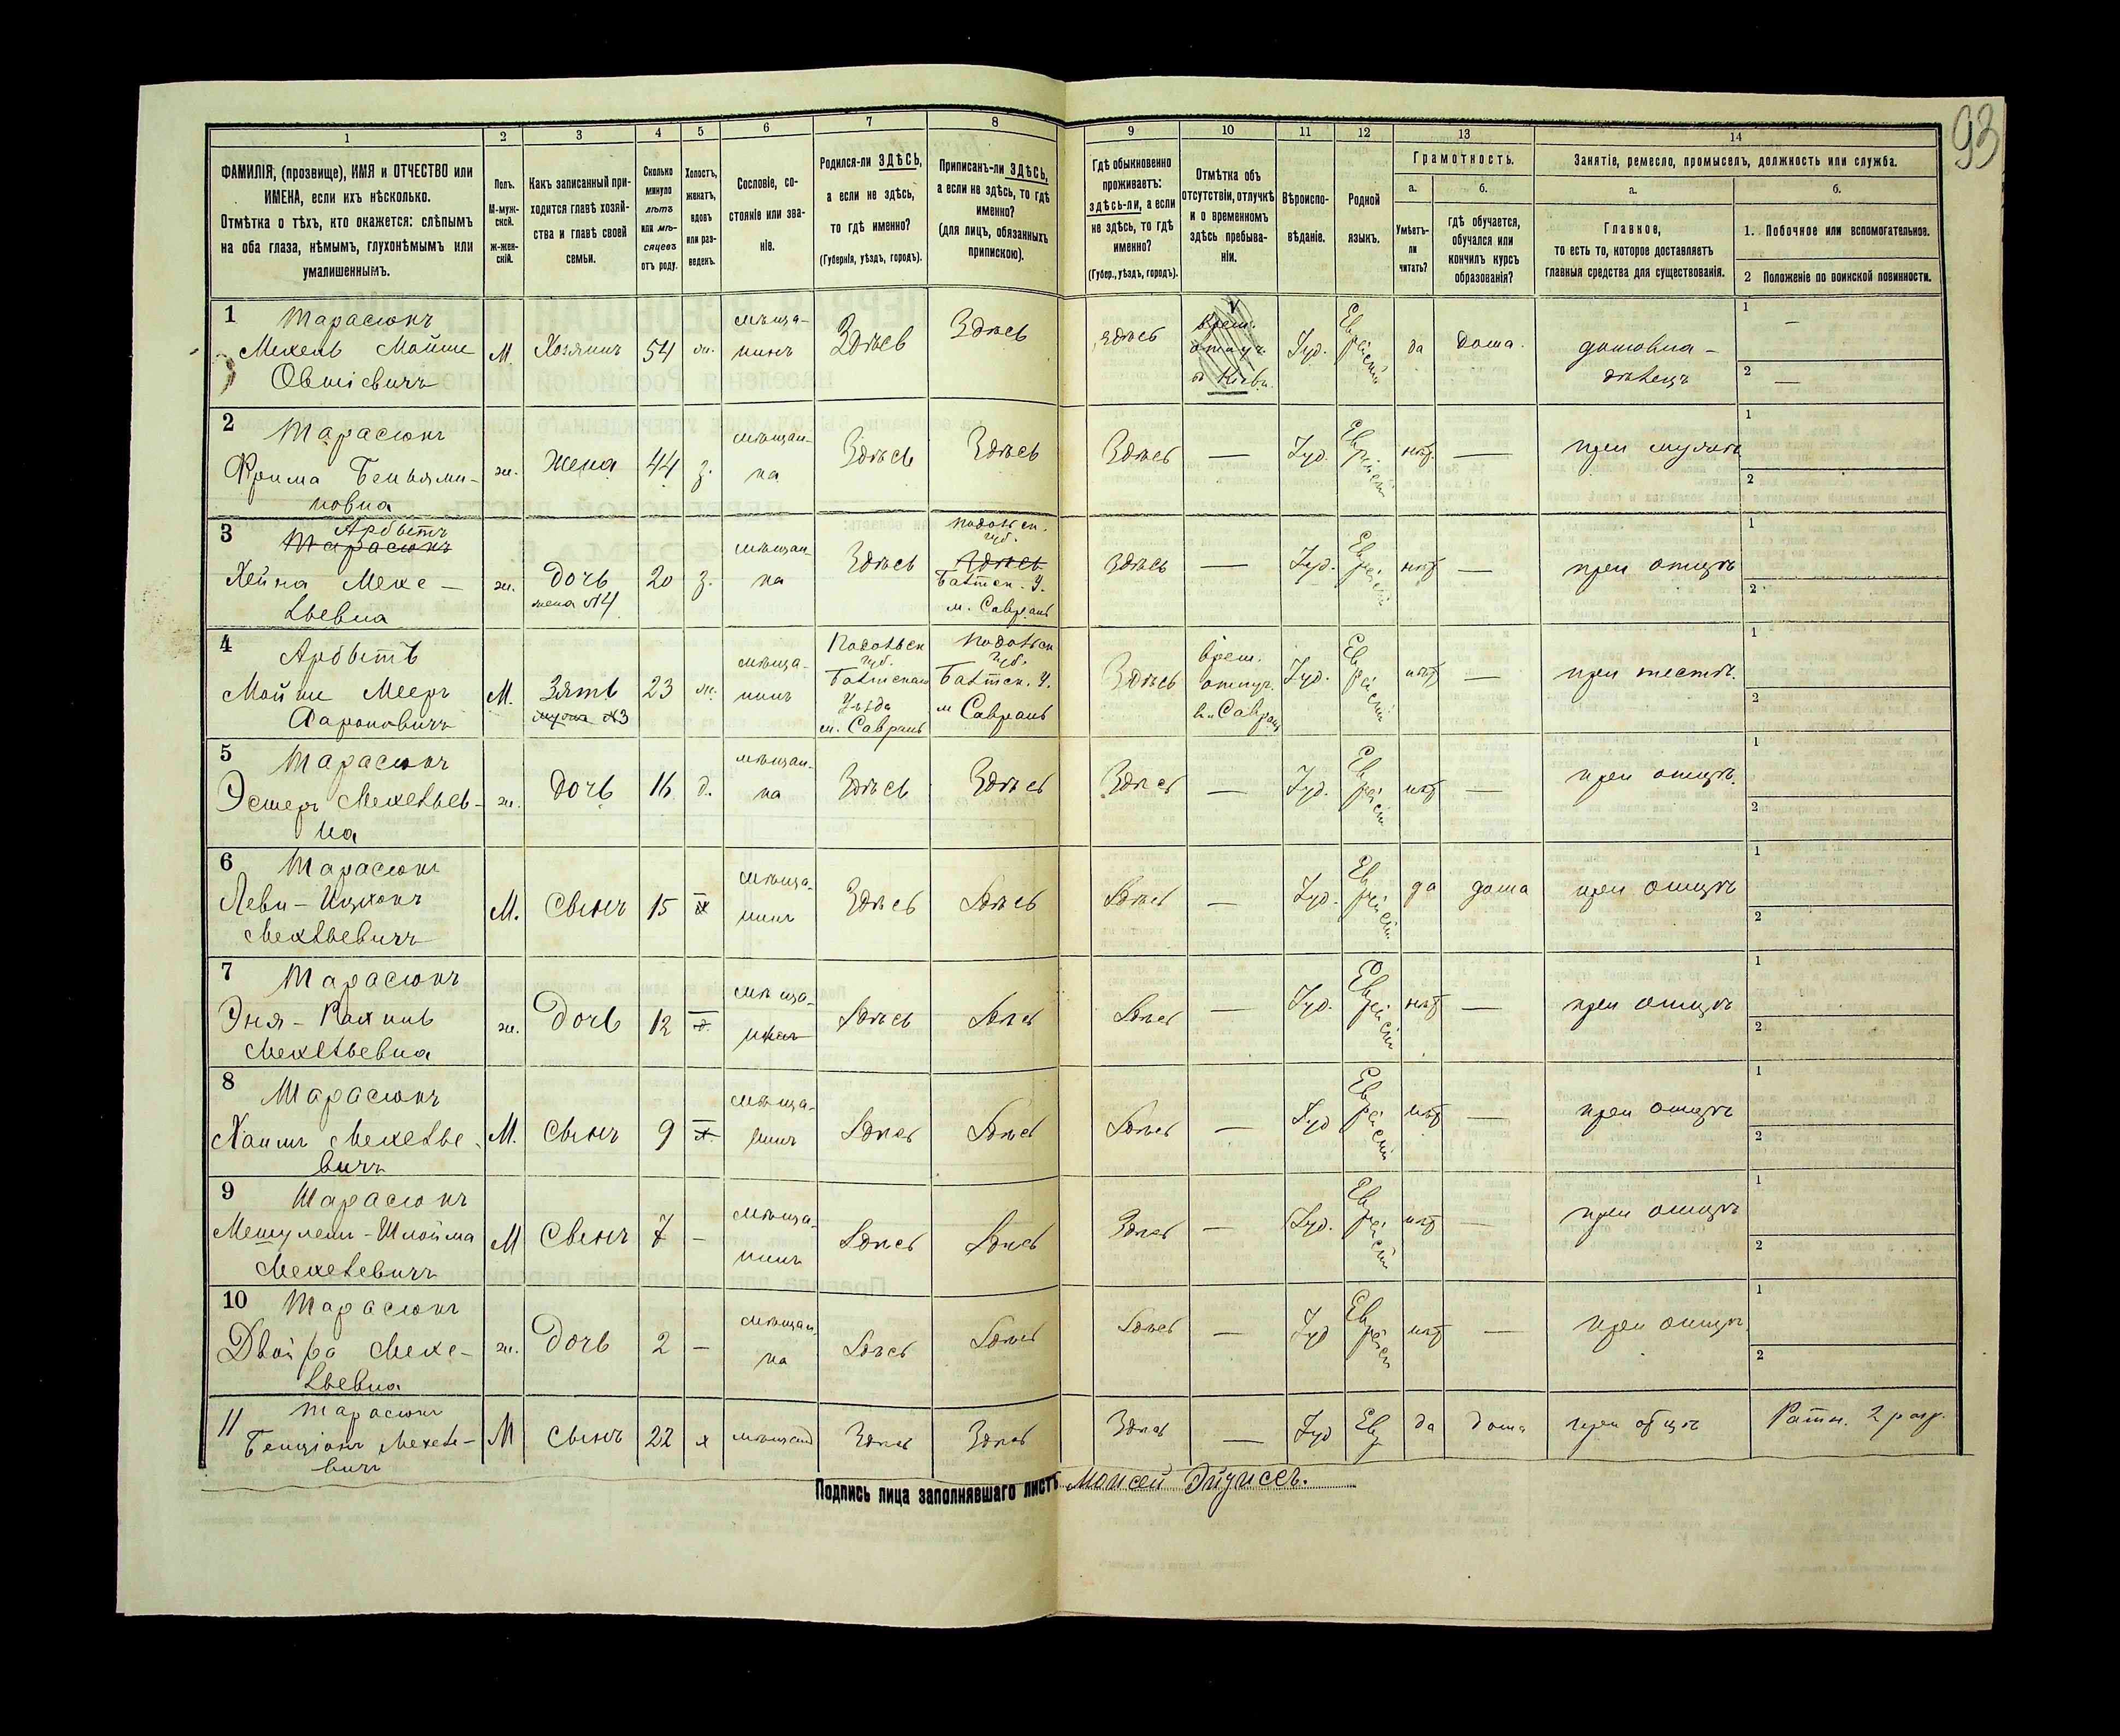 93
1 2 3 4 5 6 7 8 9 10 11 12 13 14
ФАМИЛІЯ, (прозвище), ИМЯ и ОТЧЕСТВО или
ИМЕНА, если ихъ нѣсколько.
Отмѣтка о тѣхъ, кто окажется: слѣпымъ
на оба глаза, нѣмымъ, глухонѣмымъ или
умалишеннымъ.
Полъ.
М-муж-
ской.
ж-жен-
скій.
Какъ записанный при-
ходится главѣ хозяй-
ства и главѣ своей
семьи.
Сколько
минуло
лѣтъ
или мѣ-
сяцевъ
отъ роду.
Холостъ,
женатъ,
вдовъ
или раз-
веденъ.
Сословіе, со-
стояніе или зва-
ніе.
Родился-ли ЗДѢСЬ,
а если не здѣсь,
то гдѣ именно?
(Губернія, уѣздъ, городъ).
Приписанъ-ли ЗДѢСЬ,
а если не здѣсь, то гдѣ
именно?
(для лицъ, обязанныхъ
припискою).
Гдѣ обыкновенно
проживаетъ:
здѣсь-ли, а если
не здѣсь, то гдѣ
именно?
(Губер., уѣздъ, городъ).
Отмѣтка объ
отсутствіи, отлучкѣ
и о временномъ
здѣсь пребыва-
ніи.
Вѣроиспо-
вѣданіе.
Родной
языкъ.
Грамотность.
а.
б.
Умѣетъ-
ли
читать?
гдѣ обучается,
обучался или
кончилъ курсъ
образованія?
Занятіе, ремесло, промыселъ, должность или служба.
а.
б.
Главное,
то есть то, которое доставляетъ
главныя средства для существованія.
1. Побочное или вспомогательное.
2 Положеніе по воинской повинности.
1 Тарасюкъ
Мехель Мойше
Овшіевичъ
М. Хозяинъ 54 ж. мѣща-
нинъ Здѣсь Здѣсь Здѣсь
врем.
отлуч.
Іуд. Еврейскій да дома. домовла-
дѣлецъ
1 —
2 —
2 Тарасюкъ
Фрима Беньями-
новна
ж. жена 44 з. мѣщан-
ка Здѣсь Здѣсь Здѣсь — Іуд. Еврейскій нѣт. — при мужѣ
1
2
3 Арбытъ
Тарасюкъ
Хейна Мехе-
льевна
ж. дочь
жена №4
20 з. мѣщан-
ка Здѣсь
Подольск.
губ.
Здѣсь
Балтск. У.
м. Саврань
Здѣсь — Іуд. Еврейскій нѣт — при отцѣ
1
2
4 Арбытъ
Мойше Мееръ
Аароновичъ
М. Зять
мужъ №3
23 ж. мѣща-
нинъ
Подольск
губ.
Балтскаго
Уѣзда
м. Саврань
Подольск
губ.
Балтск. У.
м Саврань
Здѣсь
врем.
отлуч.
в м. Саврань
Іуд. Еврейскій нѣт — при тестѣ.
1
2
5 Тарасюкъ
Эстеръ Мехельев-
на
ж. дочь 16 д. мѣщан-
ка Здѣсь Здѣсь Здѣсь — Іуд. Еврейск нѣт — при отцѣ.
1
2
6 Тарасюкъ
Леви-Ицхокъ
Мехльевичъ
М. Сынъ 15 х мѣща-
нинъ Здѣсь Здѣсь Здѣсь — Іуд. Еврейскій да дома при отцѣ
1
2
7 Тарасюкъ
Эня-Рахиль
Мехельевна
ж. дочь 12 д. мѣща- Здѣсь Здѣсь Здѣсь — Іуд. Еврейскій нѣт — при отцѣ
1
2
8 Тарасюкъ
Хаимъ Мехелье-
вичъ
М. Сынъ 9 х. мѣща-
нинъ Здѣсь Здѣсь Здѣсь — Іуд Еврейскій нѣт — при отцѣ
1
2
9 Тарасюкъ
Мешулемъ-Шлойма
Мехелевичъ
М Сынъ 7 — мѣща-
нинъ Здѣсь Здѣсь Здѣсь — Іуд. Еврейскій нѣт — при отцѣ
1
2
10 Тарасюкъ
Двойра Мехе-
льевна
ж. дочь 2 — мѣщан.
ка Здѣсь Здѣсь Здѣсь — Іуд Еврейск нѣт — при отцѣ.
1
2
11 Тарасюкъ
Бенціонъ Мехеле-
вичъ
М Сынъ 22 х Здѣсь Здѣсь Здѣсь — Іуд Евр да дома при отцѣ Ратн. 2 разр.
Подпись лица заполнявшаго листъ Моисей